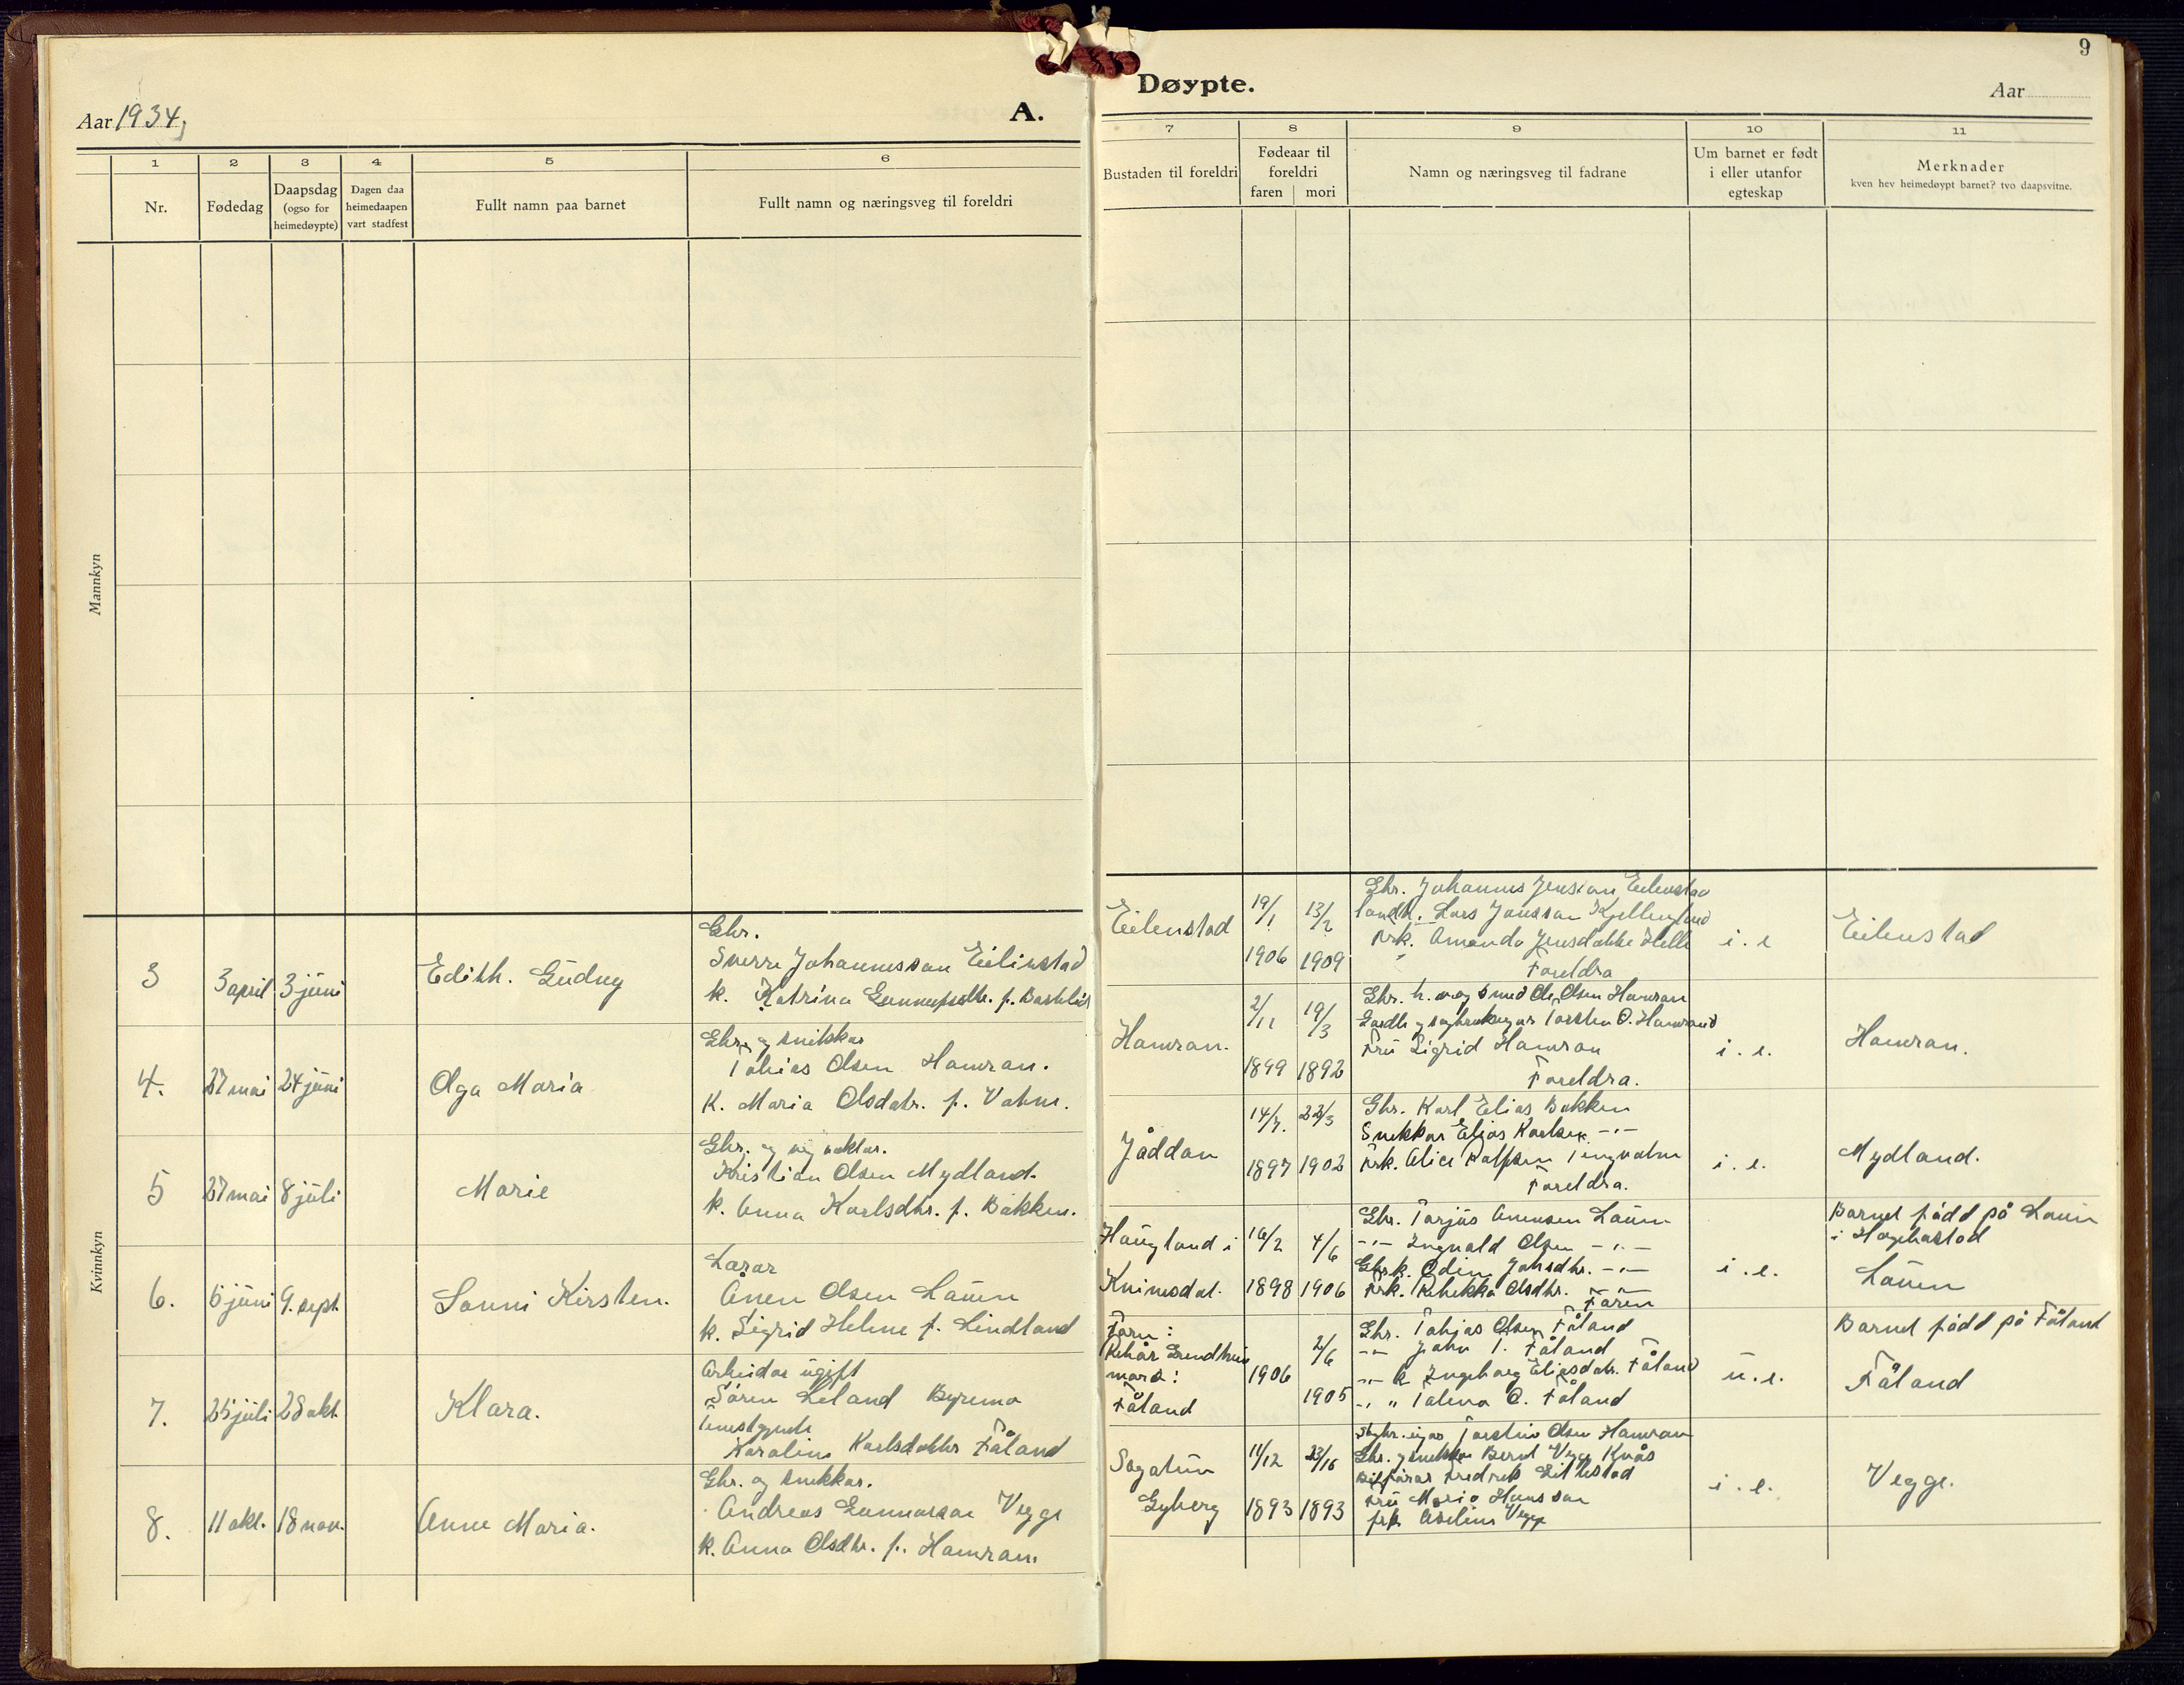 9
Aar 1934,
A.
Døypte.
Aar
1
2
3
4
5
6
7
8
9
10
11
Nr.
Fødedag
Daapsdag
(ogso for
heimedøypte)
Dagen daa
heimedaapen
vart stadfest
Fullt namn paa barnet
Fullt namn og næringsveg til foreldri
Bustaden til foreldri
Fødeaar til
foreldri
faren mori
Namn og næringsveg til fadrane
Um barnet er født
i eller utanfor
egteskap
Merknader
kven hev heimedøypt barnet? tvo daapsvitne.
Mannkyn
Kvinnkyn
3
3 april
3 juni
Edith. Gudny
Gbr.
Sverre Johannesson Eilenstad
k. Katrina
Eilenstad
19/1
1906
13/2
1909
Gbr. Johannes Jensson Eilenstad
Lars Jansson
Frk. Amanda Jensdotter Helle
Foreldra
i. e
Eilenstad
4.
27 mai
24 juni
Olga Maria
Gbr. og snikkar
Tobias Olsen Hamran.
k. Maria Olsdotr. f. Vatne.
Hamran.
2/11
1899
19/3
1892
Gbr. h. og smed Ole Olsen Hamran
Torstein O. Hamrand
Fru Sigrid Hamran
Foreldra.
i. e.
Hamran.
5
27 mai
8 juli
Marie
Gbr. og vegvaktar.
Kristian Olsen Mydland.
k. Anna Karlsdtr. f. Bakken.
Jåddan
14/7.
1897
22/3
1902
Gbr. Karl Elias Bakken
Snekkar Elias Karlsen -"-
Frk. Alice Ralfsen Tengvatn
Foreldra.
i. e.
Mydland.
6.
6 juni
9. sept
Sonni Kirsten.
Lærar
Ånen Olsen Lauen
k. Sigrid Helene f. Lindland
Haugland i
Kvinesdal.
16/2
1898
4/6
1906
Gbr. Tarjus Ånensen Lauen
-"- Ingvald Olsen -"-
Gbr.k. Odine Jahsdtr. -"-
Frk. Rebekka Olsdtr. -"-
Faren
i. e.
Barnet fødd på Lauen
i Hægebostad
Lauen
7.
25 juli
28 okt
Klara.
Arbeidar ugift
Søren Leland Byremo
Tenestgjente
Karoline Karlsdotter Fåland
Farn:
mora:
Fåland
1906
2/6
1905
Gbr. Tobias Olsen Fåland
-"- John T. Fåland
-"- k Ingeborg Eliasdotr. Fåland
-"- " Talena O. Fåland
u. e.
Barnet fødd på Fåland
Fåland
8.
11 okt.
18 nov.
Anne Maria.
Gbr. og snekkar.
Andreas Gunnarson Vegge
k. Anna Olsdtr. f. Hamran.
Sogatun
Gyberg
11/12
1893
1893
Torstein Olsen Hamran
Gbr. og snekkar Bernt Vegge Kvås
Bilførar Fredrik Eilestad
Fru Maria Hansson
frk. Åseline Vegge
i. e.
Vegge.